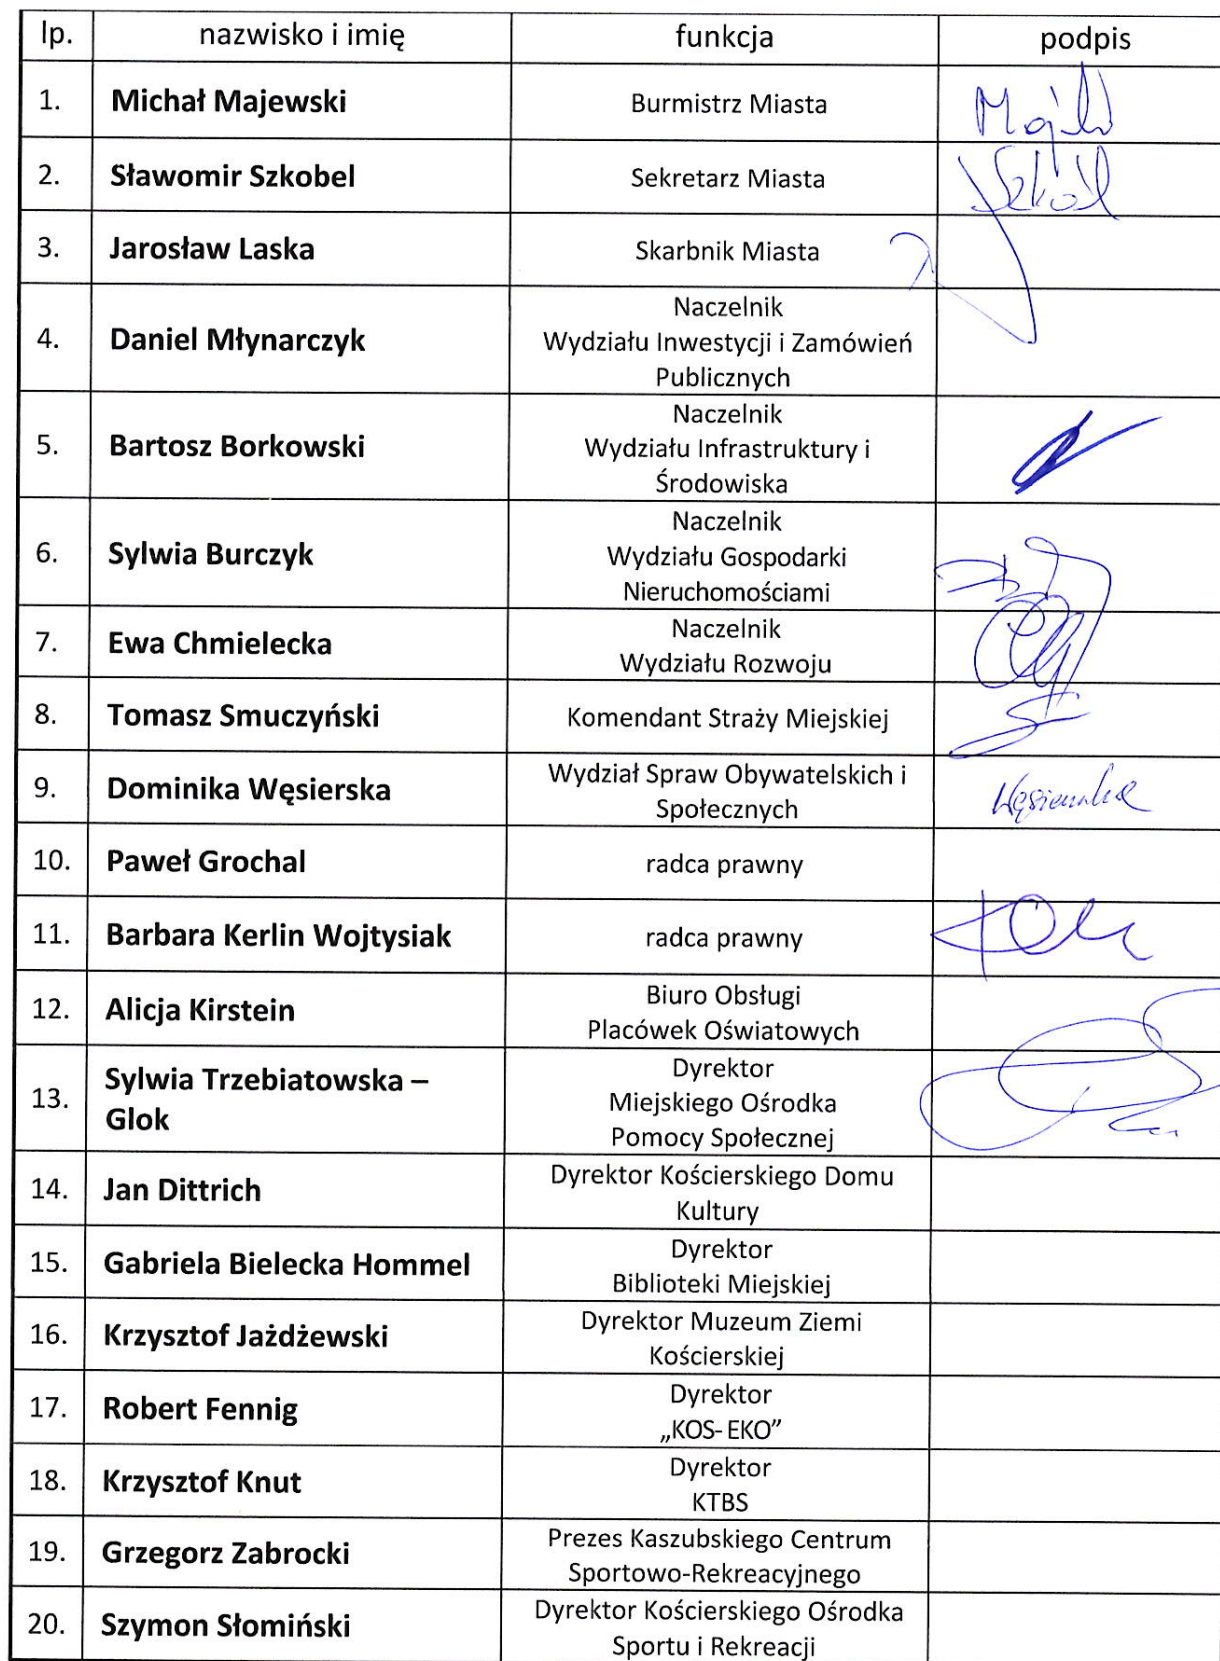 lp. nazwisko i imię funkcja podpis
1. Michał Majewski Burmistrz Miasta
2. Sławomir Szkobel Sekretarz Miasta
3. Jarosław Laska Skarbnik Miasta
4. Daniel Młynarczyk Naczelnik
Wydziału Inwestycji i Zamówień
Publicznych
5. Bartosz Borkowski Naczelnik
Wydziału Infrastruktury i
Środowiska
6. Sylwia Burczyk Naczelnik
Wydziału Gospodarki
Nieruchomościami
7. Ewa Chmielecka Naczelnik
Wydziału Rozwoju
8. Tomasz Smuczyński Komendant Straży Miejskiej
9. Dominika Węsierska Wydział Spraw Obywatelskich i
Społecznych Węsierska
10. Paweł Grochal radca prawny
11. Barbara Kerlin Wojtysiak radca prawny
12. Alicja Kirstein Biuro Obsługi
Placówek Oświatowych
13. Sylwia Trzebiatowska –
Glok Dyrektor
Miejskiego Ośrodka
Pomocy Społecznej
14. Jan Dittrich Dyrektor Kościerskiego Domu
Kultury
15. Gabriela Bielecka Hommel Dyrektor
Biblioteki Miejskiej
16. Krzysztof Jażdżewski Dyrektor Muzeum Ziemi
Kościerskiej
17. Robert Fennig Dyrektor
„KOS- EKO”
18. Krzysztof Knut Dyrektor
KTBS
19. Grzegorz Zabrocki Prezes Kaszubskiego Centrum
Sportowo-Rekreacyjnego
20. Szymon Słomiński Dyrektor Kościerskiego Ośrodka
Sportu i Rekreacji